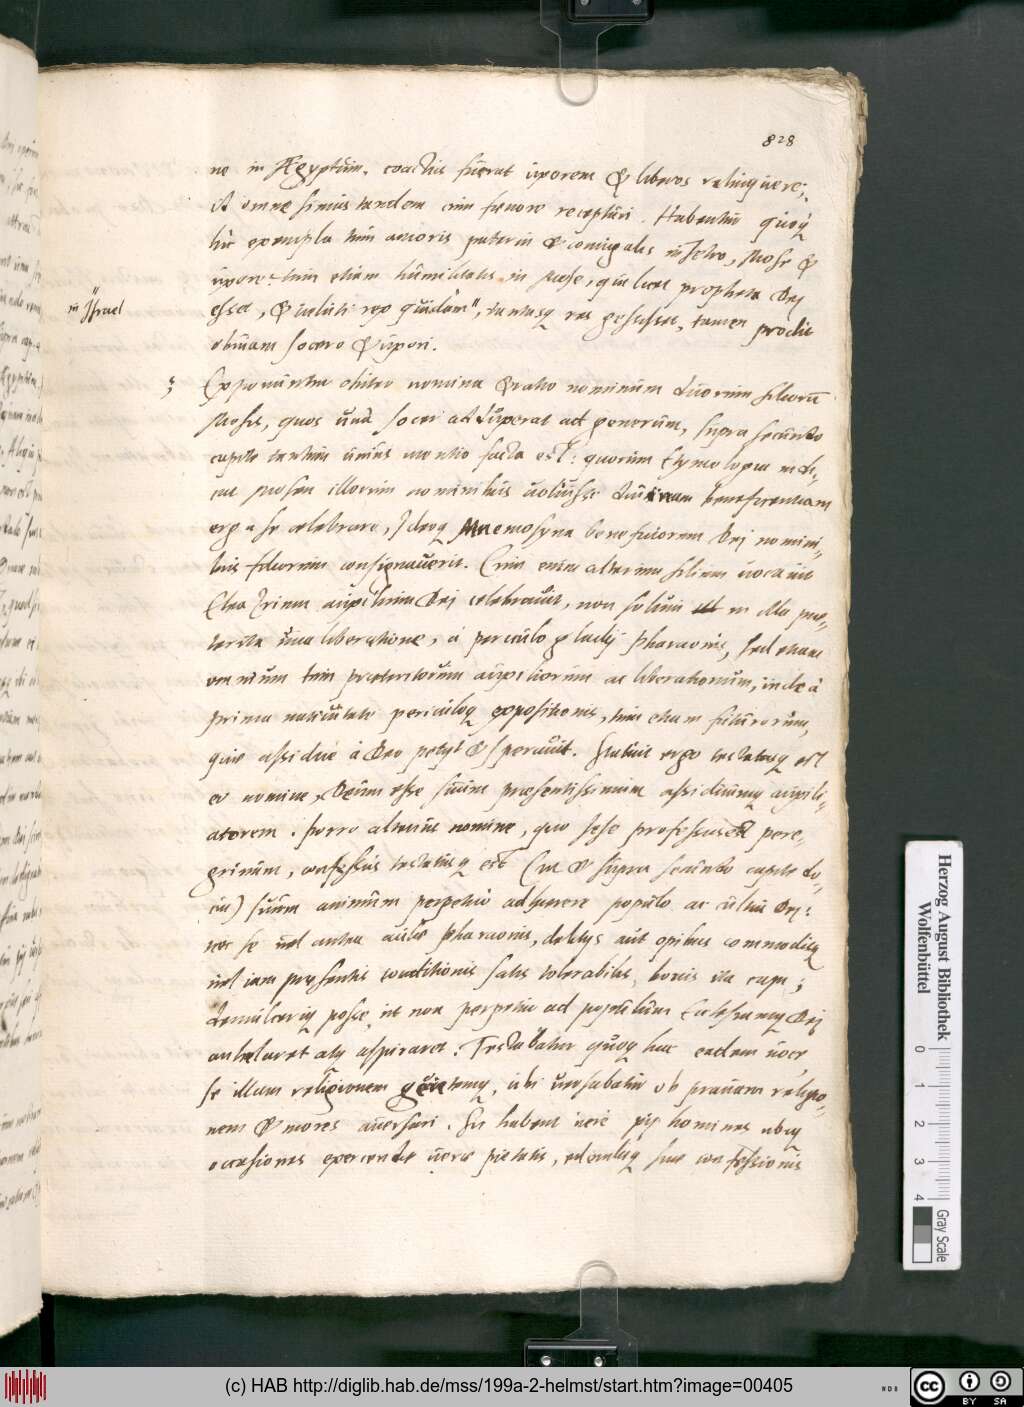 828
ne in Ægyptum. coactus fuerat uxorem & liberos relinquere;
et omne simus tandem cum fœnore recepturi. Habentur quoq
hic exempla tum amoris paterni & coniugalis in Jetro, Mose &
uxore: tum etiam humilitatis in Mose, qui licet propheta Dei
in Israel
esset, & ueluti rex quidam", tantasq res gessisset, tamen prodit
obuiam socero & uxori.
3 Exponuntur obiter nomina & ratio nominum duorum filiorū
Mosis, quos unà socer adduxerat ad generum, supra secundo
capite tantum unius mentio facta est: quorum Etymologia indi-
cat Mosen illorum nominibus uoluisse beneficentiam
erga se celebrare, Ideoq Mnemosyna beneficiorum Dei nomini-
bus filiorum consignauerit. Cum enim alterum filium uocauit
Eleazrium auxilium Dei celebrauit, non solum in illa prae-
terita una liberatione, à periculo gladij Pharaonis, sed etiam
omnium tum præteritorum auxiliorum ac liberationum, inde à
prima natiuitate periculoq expositionis, tum etiam futurorum,
quæ assidue à Deo petijt & sperauit. ergo testatusq est
eo nomine, Deum esse suum præsentissimum assiduumq auxili-
atorem. Porro alterius nomine, quo sese professus est pere-
grinum, confessus testatusq est (ut & supra secundo capite do-
cui) suum animum perpetuo adhærere populo ac cultui Dei:
nec se uel antea aulæ Pharaonis, delitijs aut opibus commodisq
uel iam præsentis conditionis satis tolerabilis, bonis ita capi;
demulceriq posse, ut non perpetuo ad populum Ecclesiamq Dei
anhelaret atq aspiraret. Testabatur quoq hac eadem uoce
se illam religionem gentemq, ubi uersabatur ob prauam religio-
nem & mores auersari. Sic habent uere pij homines ubiq
occasiones exercendæ ueræ pietatis, edendæq suæ confessionis
Herzog August Bibliothek
Wolfenbüttel
0 1 2 3 4
Gray Scale
(c) HAB http://diglib.hab.de/mss/199a-2-helmst/start.htm?image=00405
cc BY SA